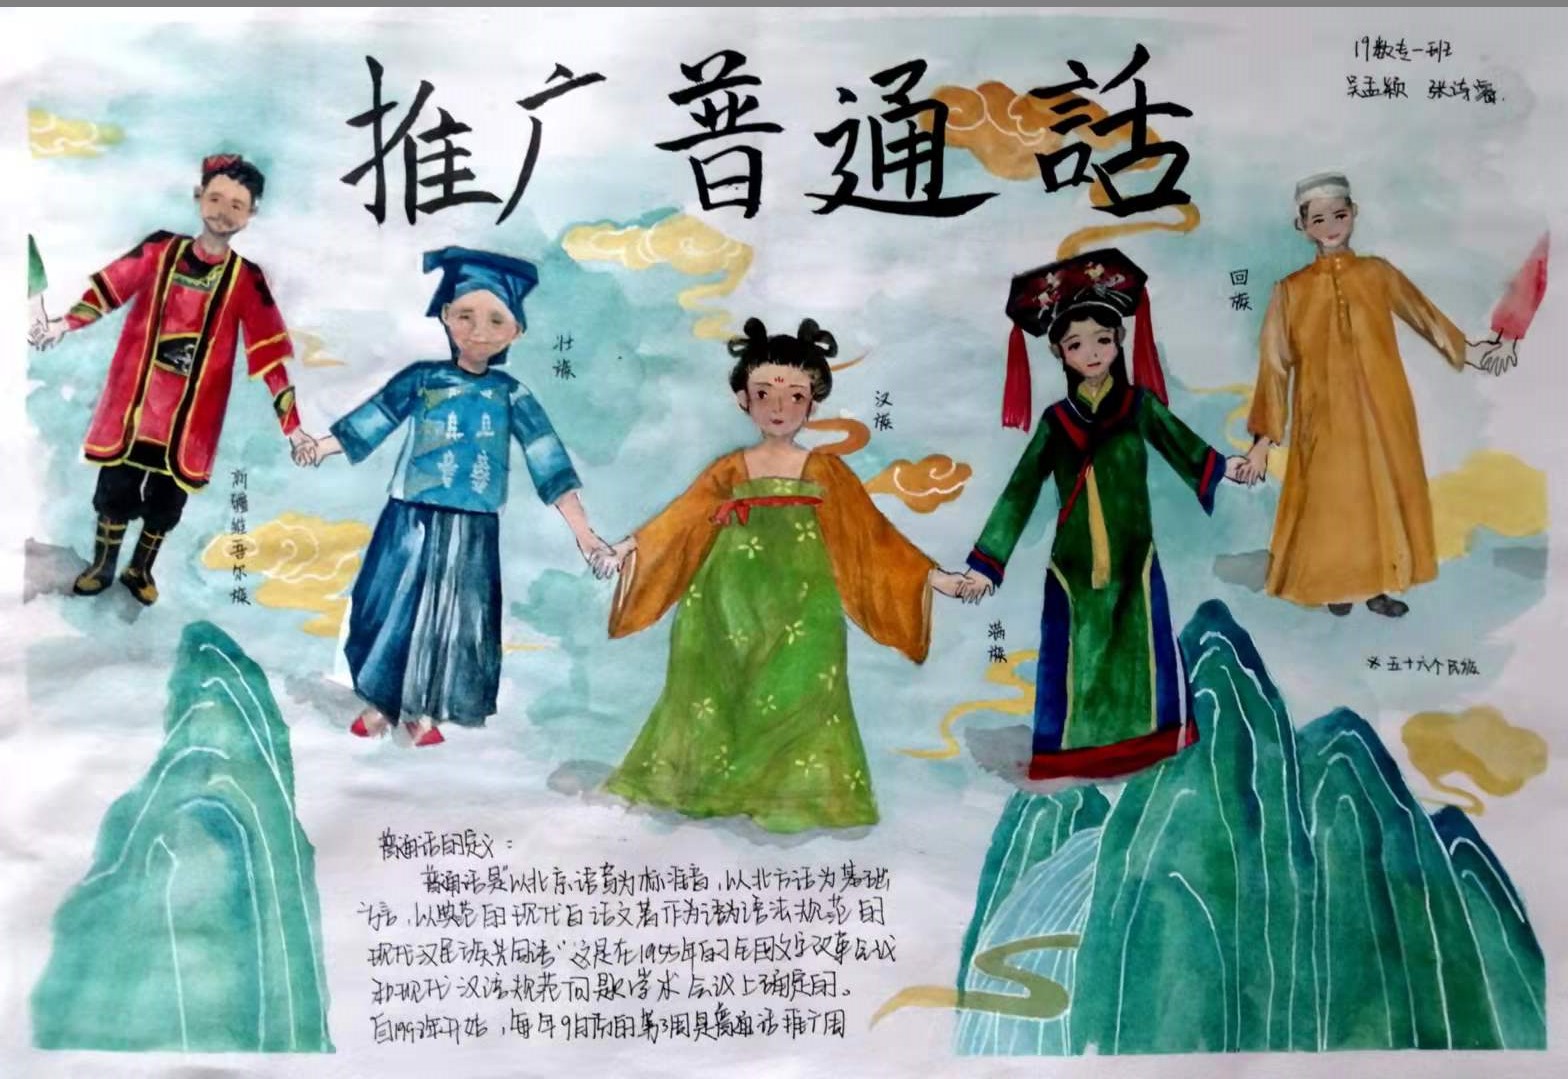 推广普通話
19数专一班
吴孟颖 张诗
新疆维吾尔族
壮族
汉族
满族
回族
※五十六个民族
普通话的定义：
普通话是“以北京语音为标准音，以北方话为基础
方言，以典范的现代白话文著作为语法规范的
现代汉民族共同语”这是在1955年的全国文字改革会议
和现代汉语规范问题学术会议上确定的。
自1998年开始，每年9月份的第3周是普通话推广周